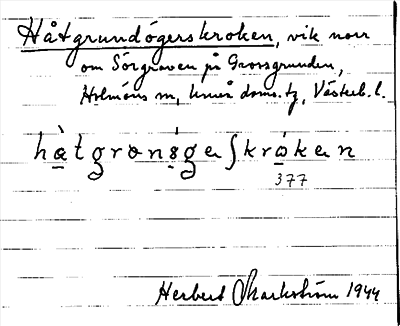 Håtgrundögerskroken, vik norr
om Sörgraven på Grossgrunden,
Holmöns sn, Umeå doms. tg, Västerb. l.
hàtgrɷnsgeʃkrokan
377
Herbert Markström 1944